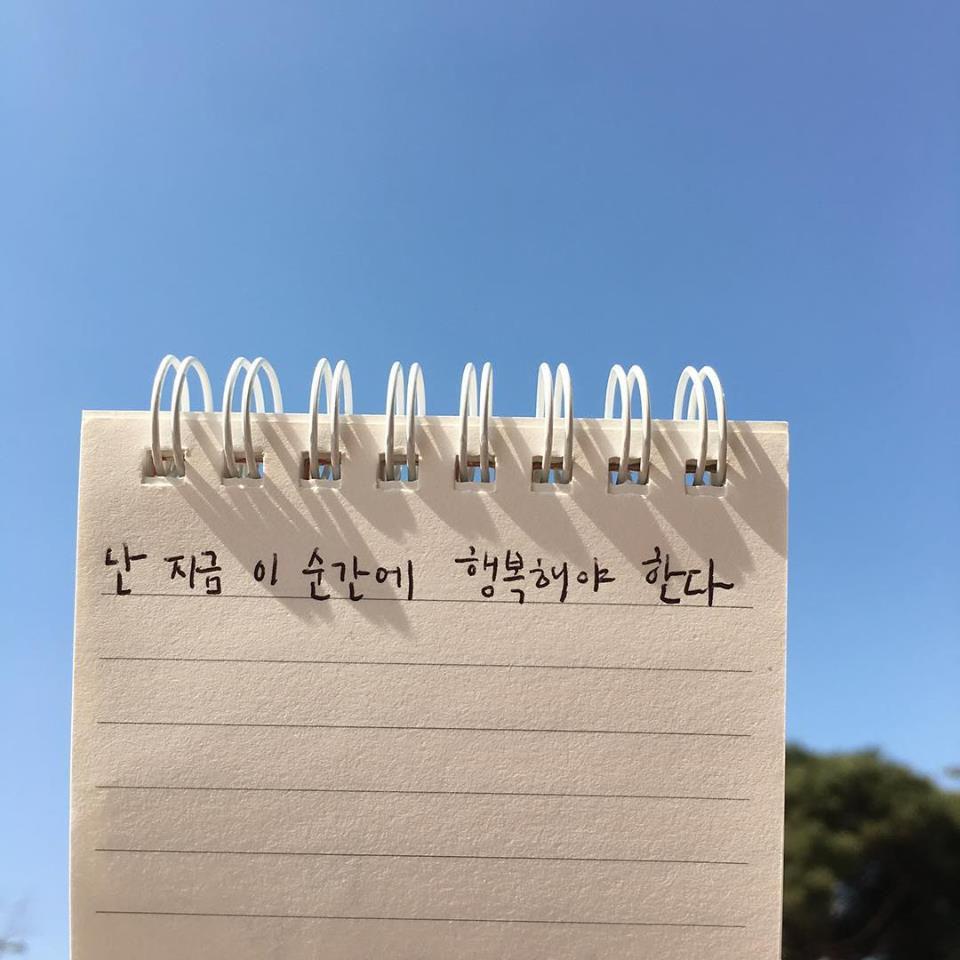 난 지금 이 순간에 행복해야 한다